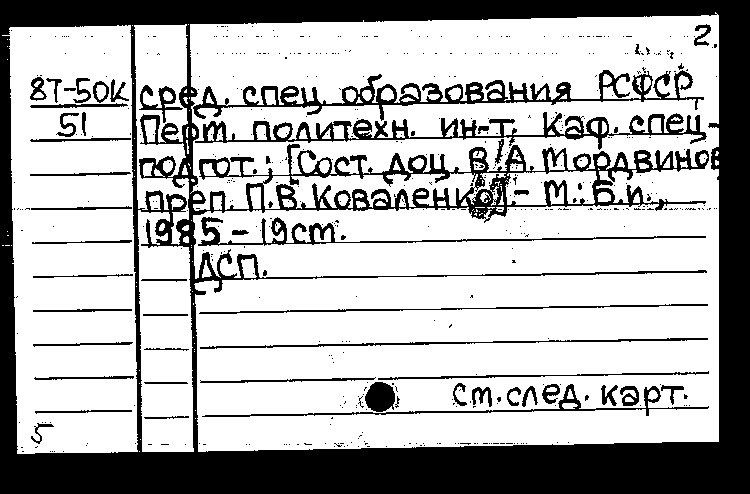 2.
8Т-50К сред. спец. образования РСФСР,
51 Перм. политехн. ин-т. Каф. спец-
подгот.; [Сост. доц. В.А. Мордвинов
преп. П.В. Коваленко]. - М.: Б.и.,
1985. - 19ст.
ДСП.
см. след. карт.
5